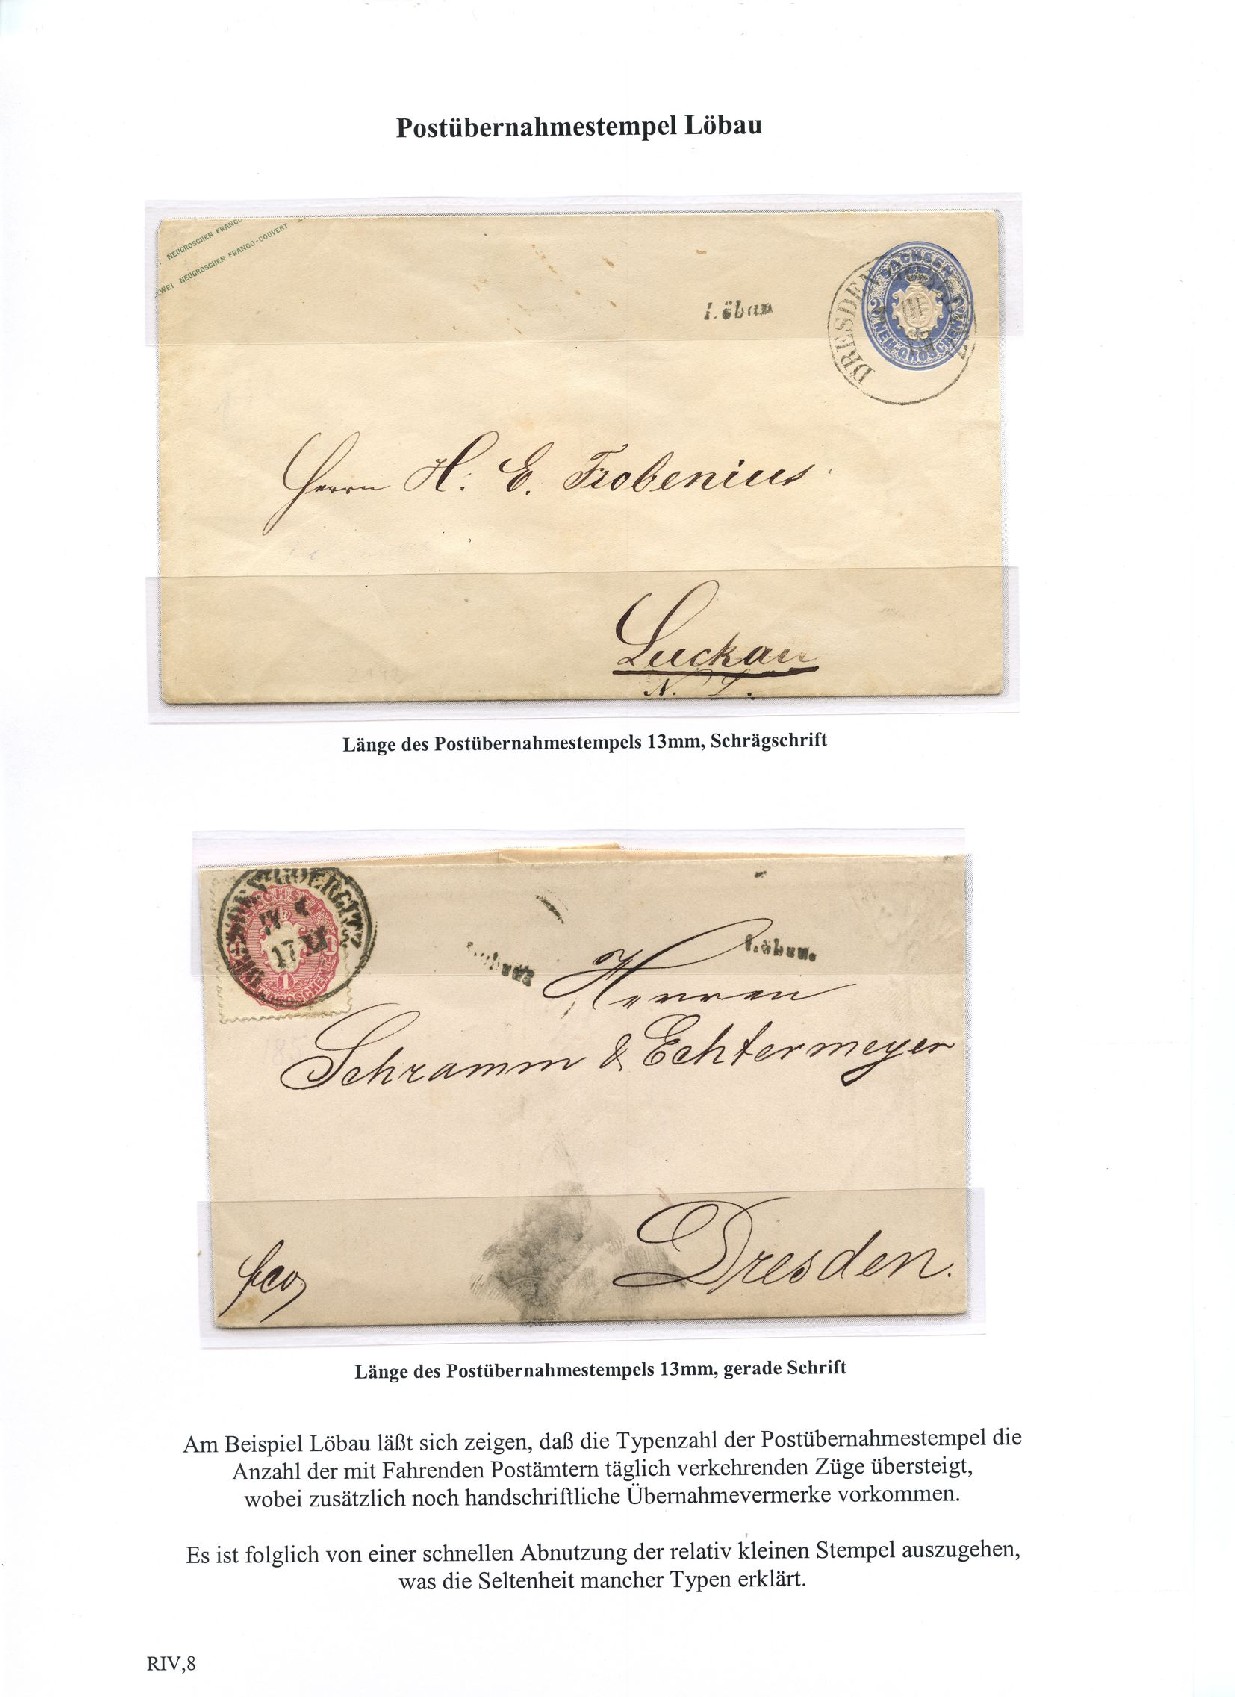 Postübernahmestempel Löbau
NEUGROSCHEN FRANCO
ZWEI NEUGROSCHEN FRANCO-COUVERT
Löbau
DRESDEN
SACHSEN
Herrn H. E. Frobenius
Luckau
N. L.
Länge des Postübernahmestempels 13mm, Schrägschrift
DRESDEN GOERLITZ
17 VI
1
Löbau.
Herren
Schramm & Echtermeyer
Dresden.
fco
Länge des Postübernahmestempels 13mm, gerade Schrift
Am Beispiel Löbau läßt sich zeigen, daß die Typenzahl der Postübernahmestempel die
Anzahl der mit Fahrenden Postämtern täglich verkehrenden Züge übersteigt,
wobei zusätzlich noch handschriftliche Übernahmevermerke vorkommen.
Es ist folglich von einer schnellen Abnutzung der relativ kleinen Stempel auszugehen,
was die Seltenheit mancher Typen erklärt.
RIV,8